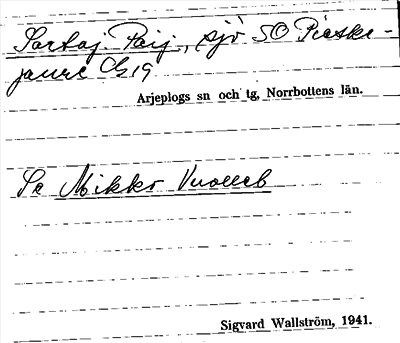 Sartaj. Paij, sjö SO Pieske-
jaure C/s 19
Arjeplogs sn och tg, Norrbottens län.
Sa Mikko Vuolleb
Sigvard Wallström, 1941.